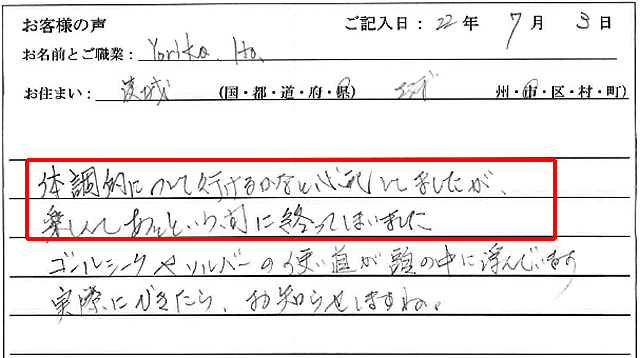 お客様の声 ご記入日：22年 7月 3日
お名前とご職業： Yoriko Ito.
お住まい： 茨城 (国・都・道・府・県) 州・市・区・村・町)
体調的について行けるかなと心配してましたが、
楽しんであっという間に終ってしまいました
ゴールシークやソルバーの使い道が頭の中に浮んでいます
実際にできたら、お知らせしますね。